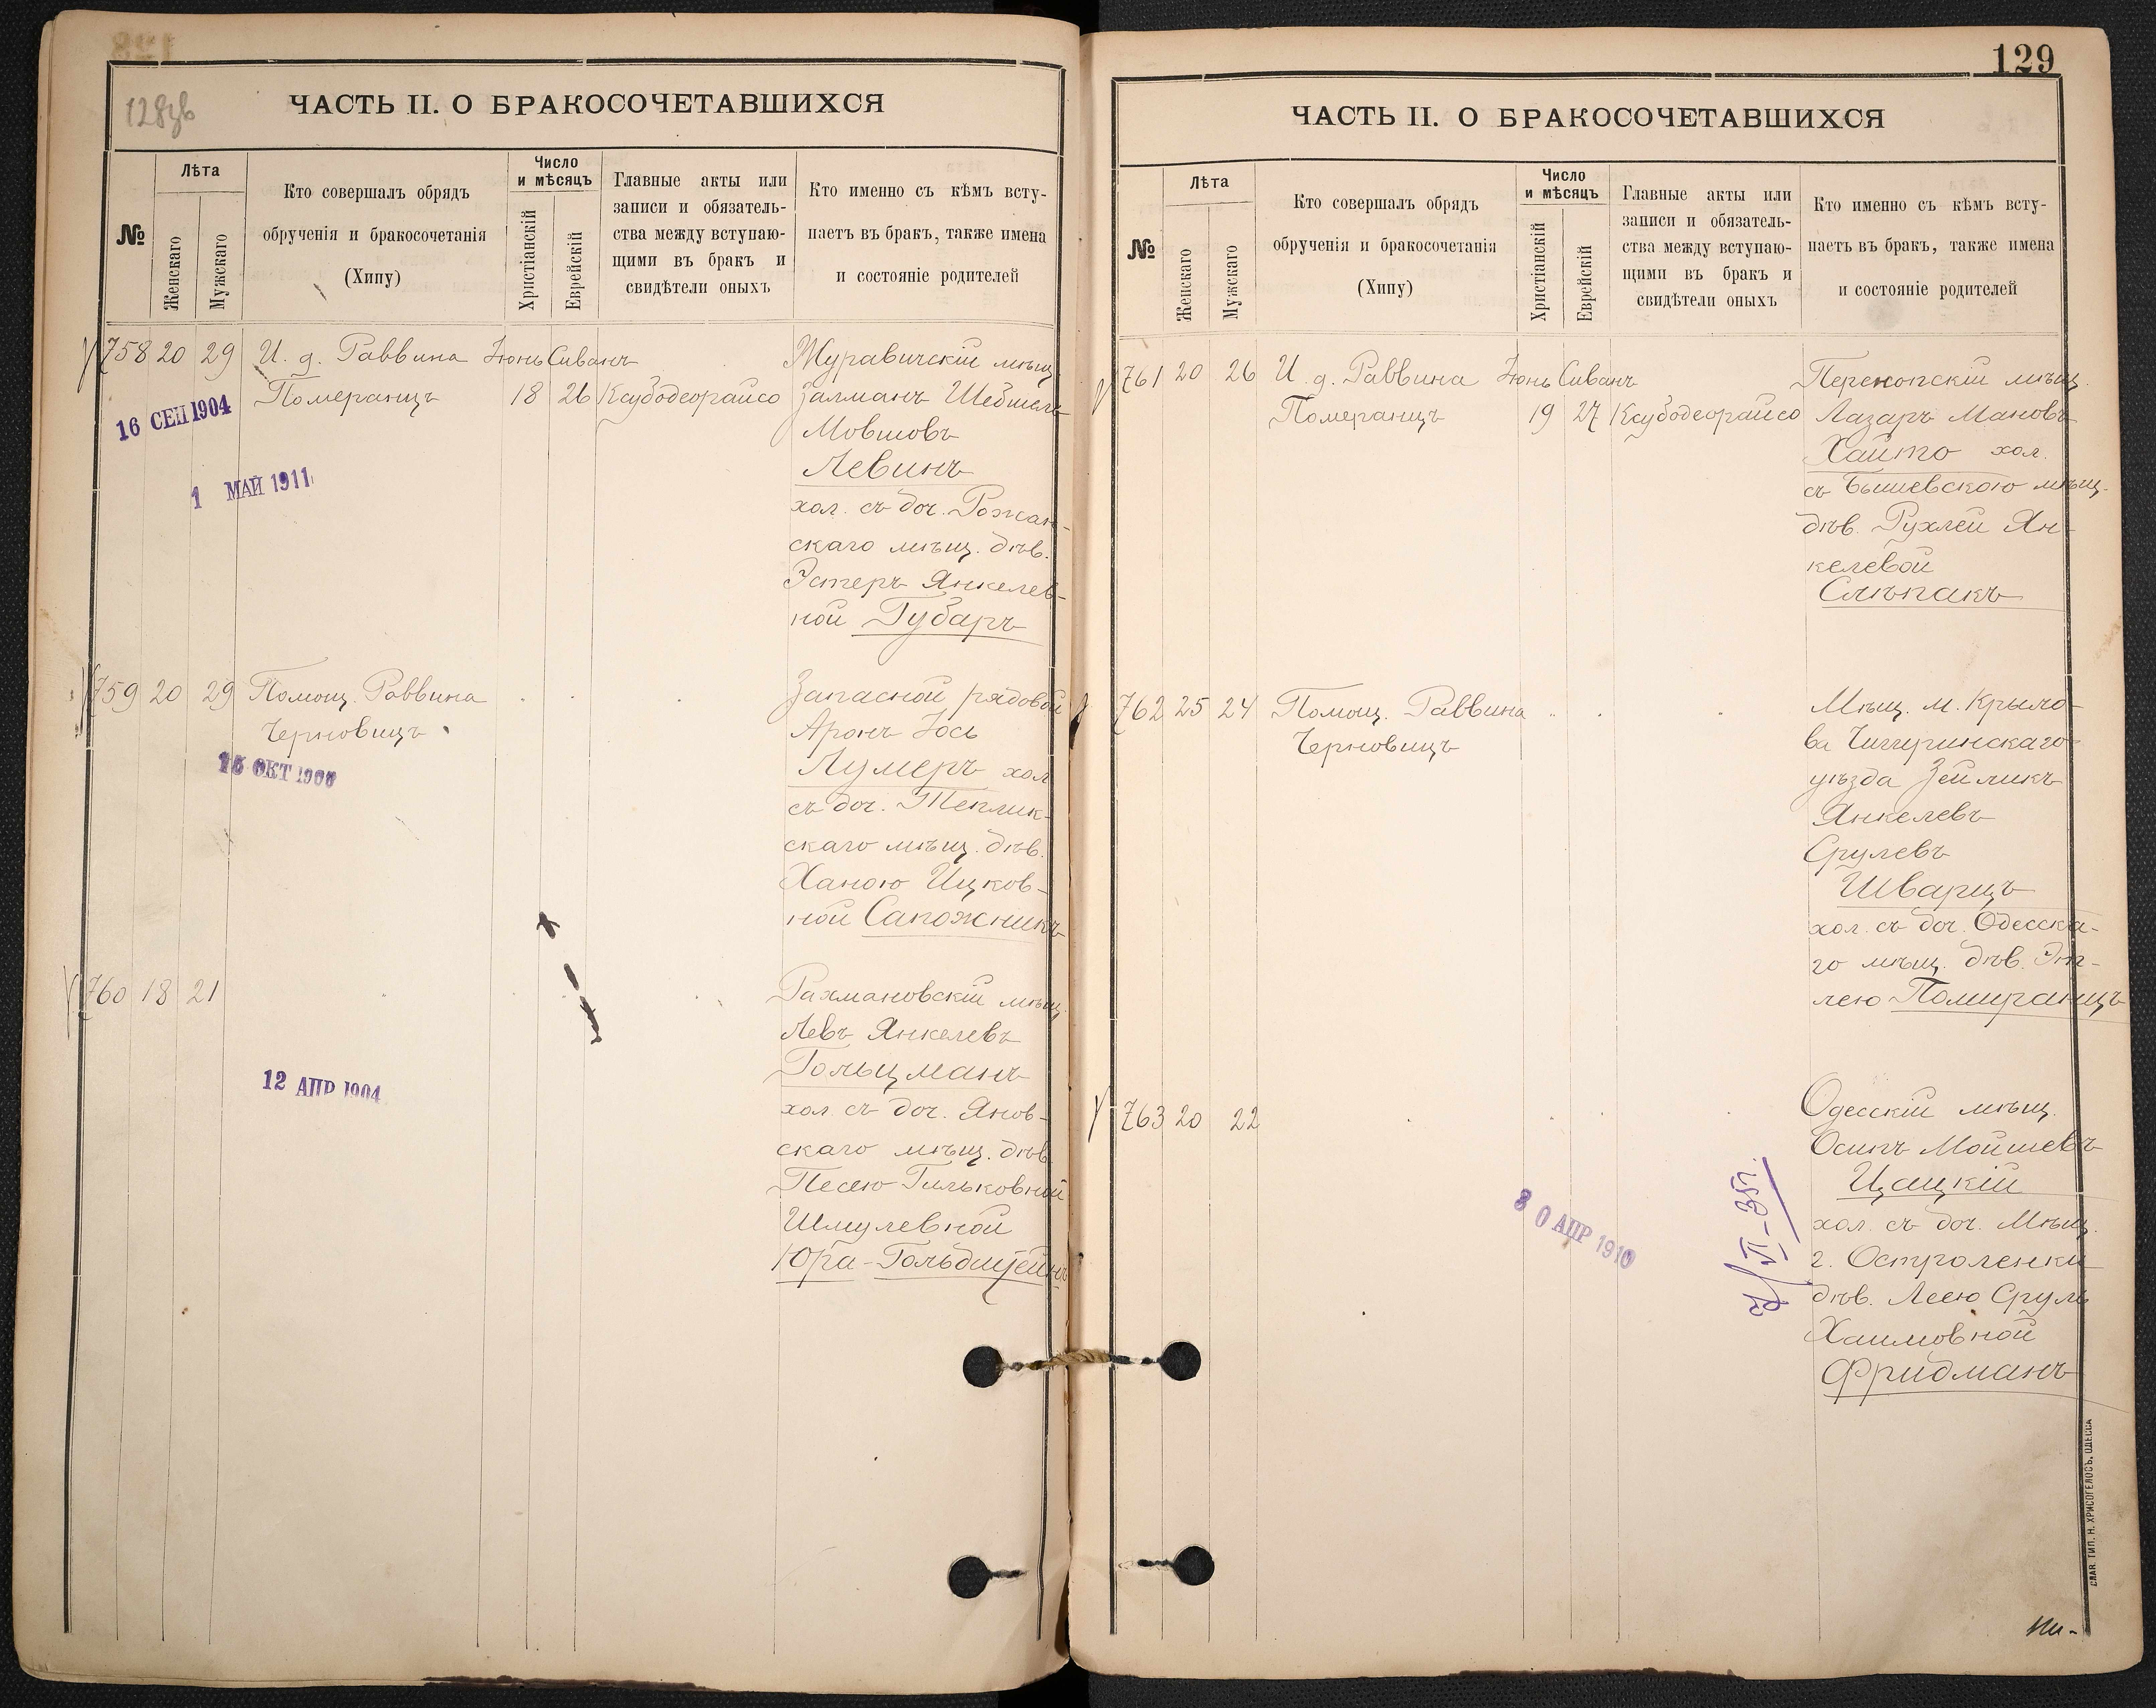 128зв
ЧАСТЬ II. О БРАКОСОЧЕТАВШИХСЯ
№
Лѣта
Женскаго
Мужскаго
Кто совершалъ обрядъ
обрученія и бракосочетанія
(Хипу)
Число
и мѣсяцъ
Христіанскій
Еврейскій
Главные акты или
записи и обязатель-
ства между вступаю-
щими въ бракъ и
свидѣтели оныхъ
Кто именно съ кѣмъ всту-
паетъ въ бракъ, также имена
и состояніе родителей
758 20 29 И. д. Раввина Іюнь Сиванъ Журавичскій мѣщ.
Померанцъ 18 26 Ксубодеорайсо Залманъ Шевшель
16 СЕН 1904
Мовшовъ
Левинъ
1 МАЙ 1911
хол. съ доч. Рожан-
скаго мѣщ. дѣв.
Эстеръ Янкелев-
ной Губаръ
759 20 29 Помощ. Раввина Запасной рядовой
Черновицъ Аронъ Іось
15 ОКТ 1906
Лумеръ хол
съ доч. Теплик-
скаго мѣщ. дѣв.
Ханою Ицков-
ной Сапожникъ
760 18 21 Рахмановскій мѣщ.
Левъ Янкелевъ
Гольцманъ
12 АПР 1904
хол. съ доч. Янов-
скаго мѣщ. дѣв
Песею Гильковной
Шмулевной
Юра-Гольдштейнъ
129
ЧАСТЬ II. О БРАКОСОЧЕТАВШИХСЯ
№
Лѣта
Женскаго
Мужскаго
Кто совершалъ обрядъ
обрученія и бракосочетанія
(Хипу)
Число
и мѣсяцъ
Христіанскій
Еврейскій
Главные акты или
записи и обязатель-
ства между вступаю-
щими въ бракъ и
свидѣтели оныхъ
Кто именно съ кѣмъ всту-
паетъ въ бракъ, также имена
и состояніе родителей
761 20 26 И. д. Раввина Іюнь Сиванъ Перекопскій мѣщ.
Померанцъ 19 27 Ксубодеорайсо Лазаръ Мановъ
Хаймо хол.
съ Бышевскою мѣщ.
дѣв. Рухлей Ян-
келевой
Слѣпакъ
762 25 24 Помощ. Раввина Мѣщ. м. Крыло-
Черновицъ ва Чигиринскаго
уѣзда Зейликъ
Янкелевъ
Срулевъ
Шварцъ
хол. съ доч. Одесска-
го мѣщ. дѣв. Эт-
лею Помиранцъ
763 20 22 Одесскій мѣщ.
Осипъ Мойшевъ
Цацкій
хол. съ доч. Мѣщ.
30 АПР 1910
г. Остроленки
дѣв. Леею Сруль
Хаимовной
Фридманъ
СЛАВ. ТИП. Н. ХРИСОГЕЛОСЪ, ОДЕССА